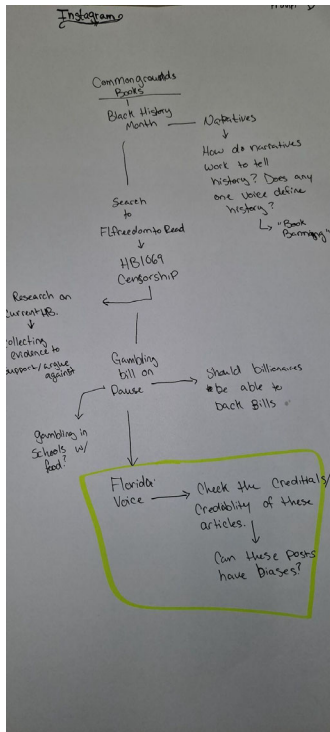 Instagram
Commongrounds
Books
Black History
Month
Narratives
How do narratives
work to tell
history? Does any
one voice define
history?
"Book
Banning"
Search
to
FLfreedomtoRead
HB1069
Censorship
Research on
current HB.
collecting
evidence to
support/argue
against
Gambling
bill on
Pause
Should billionaires
be able to
back Bills
gambling in
schools w/
food?
Florida:
Voice
Check the Credittals/
Credablity of these
articles.
Can these posts
have biases?